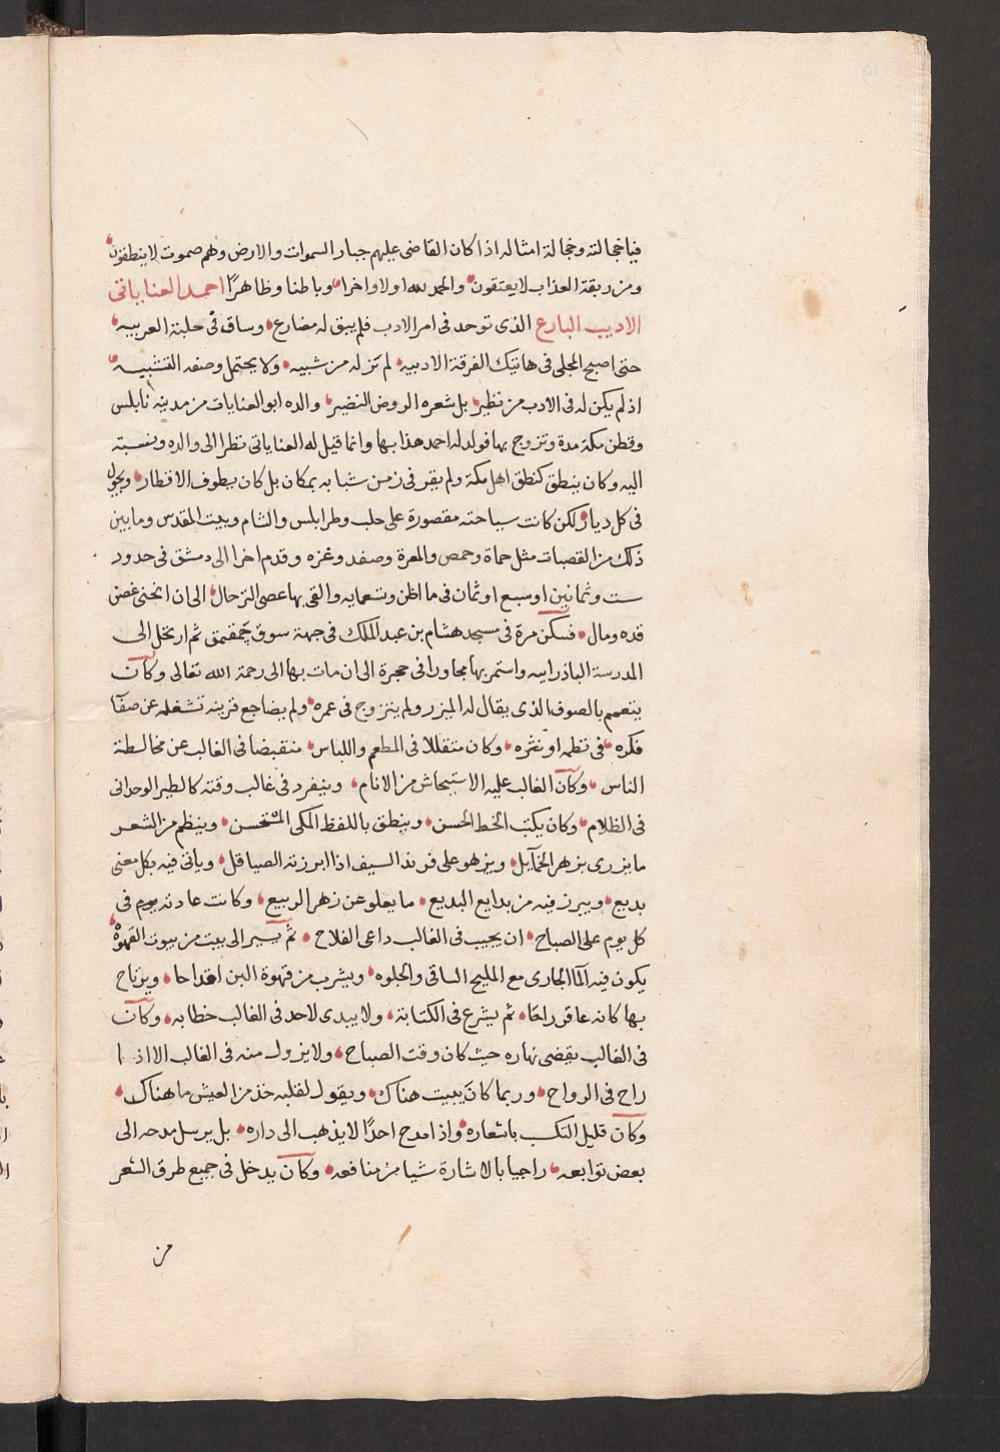 فياخجالته وخجالة امثاله اذا كان القاضى عليهم جبار السموات والارض وهم صموت لا ينطقون
ومن ربقة العذاب لا يعتقون والحمد لله اولا واخرا وباطنا وظاهرًا احمد العناياتى
الاديب البارع الذى توحد فى امر الادب فلم يبق له مضارع وساق فى حلبة العربيه
حتى اصبح المجلى فى هاتيك الفرقة الادبيه لم نر له من شبيه ولا يحتمل وصفه التشبيه
اذ لم يكن له فى الادب من نظير بل شعره الروض النضير والده ابو العنايات من مدينة نابلس
وقطن مكة مدة وتزوج بها فولد له احمد هذا بها وانما قيل له العناياتى نظرا الى والده ونسبته
اليه وكان ينطق كنطق اهل مكة ولم يقر فى زمن شبابه بمكان بل كان يطوف الاقطار ويجول
فى كل ديار ولكن كانت سياحته مقصورة على حلب وطرابلس والشام وبيت المقدس وما بين
ذلك من القصبات مثل حماة وحمص والمعرة وصفد وغزه وقدم اخرا الى دمشق فى حدود
ست وثمانين او سبع او ثمان فى ما اظن وتسعمايه والقى بها عصى الترحال الى ان انحنى غصن
قده ومال فسكن مرة فى مسجد هشام بن عبد الملك فى جهة سوق جقمق ثم ارتحل الى
المدرسة الباذرايه واستمر بها مجاورا فى حجرة الى ان مات بها الى رحمة الله تعالى وكان
يتعمم بالصوف الذى يقال له الميزر ولم يتزوج فى عمره ولم يضاجع قرينه تشغله عن صفآ
فكره فى نظمه او نثره وكان متقللا فى المطعم واللباس منقبضا فى الغالب عن مخالطة
الناس وكان الغالب عليه الاستيحاش من الانام وينفرد فى غالب وقته كالطير الوحدانى
فى الظلام وكان يكتب الخط الحسن وينطق باللفظ المكى المستحسن وينظم من الشعر
ما يزرى بزهر الخمآيل ويزهو على فرند السيف اذا ابرزته الصياقل وياتى فيه بكل معنى
بديع ويبرز فيه من بدايع البديع ما يعلو عن زهر الربيع وكانت عادته يوم فى
كل يوم على الصباح ان يجيب فى الغالب داعى الفلاح ثم يسير الى بيت من بيوت القهوة
يكون فيه المآ الجارى مع المليح الساقى والجلوه ويشرب من قهوة البن اقداحا ويرتاح
بها كانه عاقر راحًا ثم يشرع فى الكتابة ولا يبدى لاحد فى الغالب خطابه وكان
فى الغالب يقضى نهاره حيث كان وقت الصباح ولا يزول منه فى الغالب الا اذا
راح فى الرواح وربما كان يبيت هناك ويقول لقلبه خذ من العيش ما هناك
وكان قليل التكسب باشعاره واذا مدح احدًا لا يذهب الى داره بل يرسل مدحه الى
بعض توابعه راجيا بالاشارة شيا من منافعه وكان يدخل فى جميع طرق الشعر
من